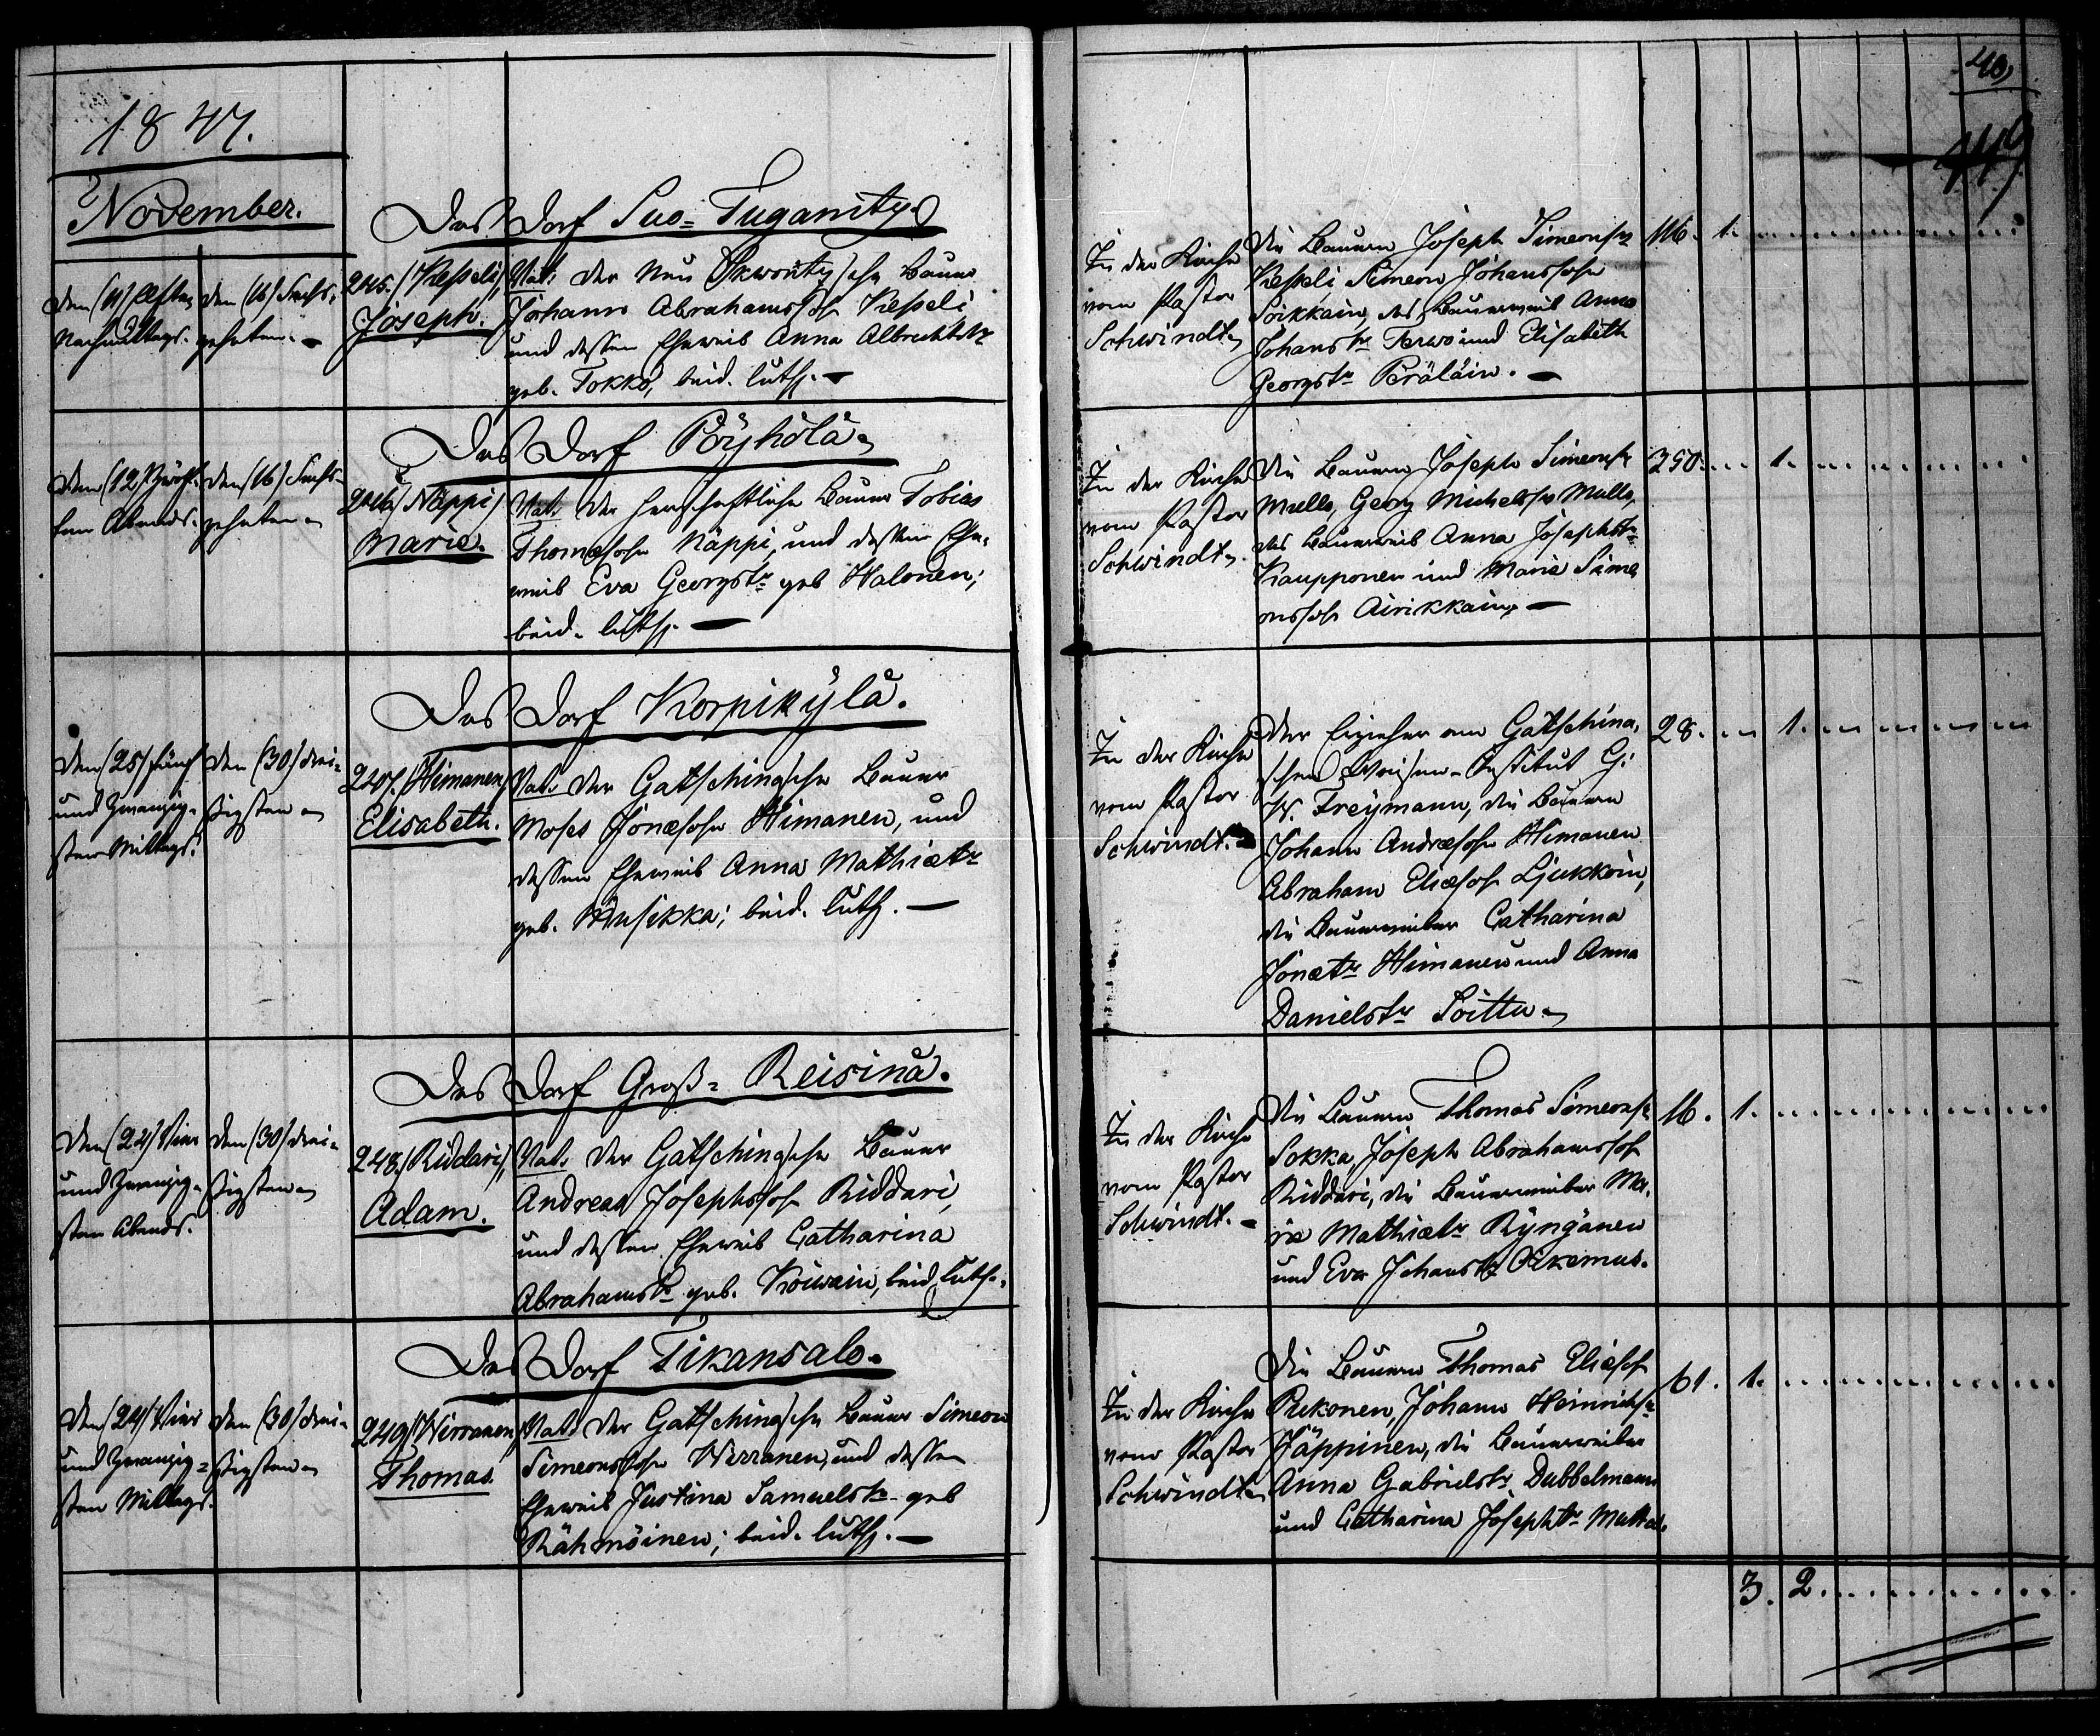 40,
449
1847.
November.
Das Dorf Suo-Tuganity.
den (11) Elften
Nachmittags.
den (16) Sechs-
zehnten.
245. Kesseli,
Joseph.
Vat. der Neu Skworitzsche Bauer
Johann Abrahamssohn Kesseli
und dessen Eheweib Anna Albrechtstr
geb. Tokko, beid. luth.
In der Kirche
vom Pastor
Schwindt.
Die Bauern Joseph Simeonss
Kesseli, Simeon Johannssohn
Soikkain, das Bauerweib Anna
Johanstr Terwo und Elisabeth
Georgstr Peräläin.
116. 1.
Das Dorf Pöyhölä.
den (12) Zwölf-
ten Abends.
den (16) Sechs-
zehnten
246. Näppi,
Marie.
Vat. der herrschaftliche Bauer Tobias
Thomasohn Näppi, und dessen Ehe-
weib Eva Georgstr geb Halonen;
beid. luth.
In der Kirche
vom Pastor
Schwindt.
Die Bauern Joseph Simeonss
Mullo, Georg Michelss Mullo,
das Bauerweib Anna Josephstr
Kaupponen und Marie Sime
onssoh Airikkain.
250. 1.
Das Dorf Korpikylä.
den (25) Fünf
und Zwanzig-
sten Mittags.
den (30) drei-
ßigsten
247. Himanen,
Elisabeth.
Vat. der Gatschinasche Bauer
Moses Jonæsohn Himanen, und
dessen Eheweib Anna Mathiætr
geb. Musikka; beid. luth.
In der Kirche
vom Pastor
Schwindt.
Der Erzieher am Gatschina-
schen Waisen-Institut G.
W. Freymann, die Bauern
Johann Andræsohn Himanen
Abraham Eliæsoh Ljukkoin,
die Bauerweiber Catharina
Jonætr Himanen und Anna
Danielstr Soittu.
28. 1.
Das Dorf Groß-Reisinä.
den (24) Vier
und Zwanzig-
sten Abends.
den (30) drei-
ßigsten
248. Riddari,
Adam.
Vat. der Gatschinasche Bauer
Andreas Josephssoh Riddari,
und dessen Eheweib Catharina
Abrahamstr geb. Koiwain, beid. luth.
In der Kirche
vom Pastor
Schwindt.
Die Bauern Thomas Simeonss
Sokka, Joseph Abrahamssoh
Riddari, die Bauerweiber Ma-
rie Mathiætr Ryngänen
und Eva Johanstr Oikemus.
16. 1.
Das Dorf Tikansalo.
den (24) Vier
und Zwanzig-
sten Mittags.
den (30) drei-
ßigsten
249. Wirranen,
Thomas.
Vat. der Gatschinasche Bauer Simeon
Simeonssohn Wirranen, und dessen
Eheweib Justina Samuelstr geb
Rähmöinen; beid. luth.
In der Kirche
vom Pastor
Schwindt.
Die Bauern Thomas Eliæsoh
Pukonen, Johann Heinrichss
Jäppinen, die Bauerweiber
Anna Gabrielstr Dubbelmann
und Catharina Josephtr Matta.
61. 1.
3. 2.